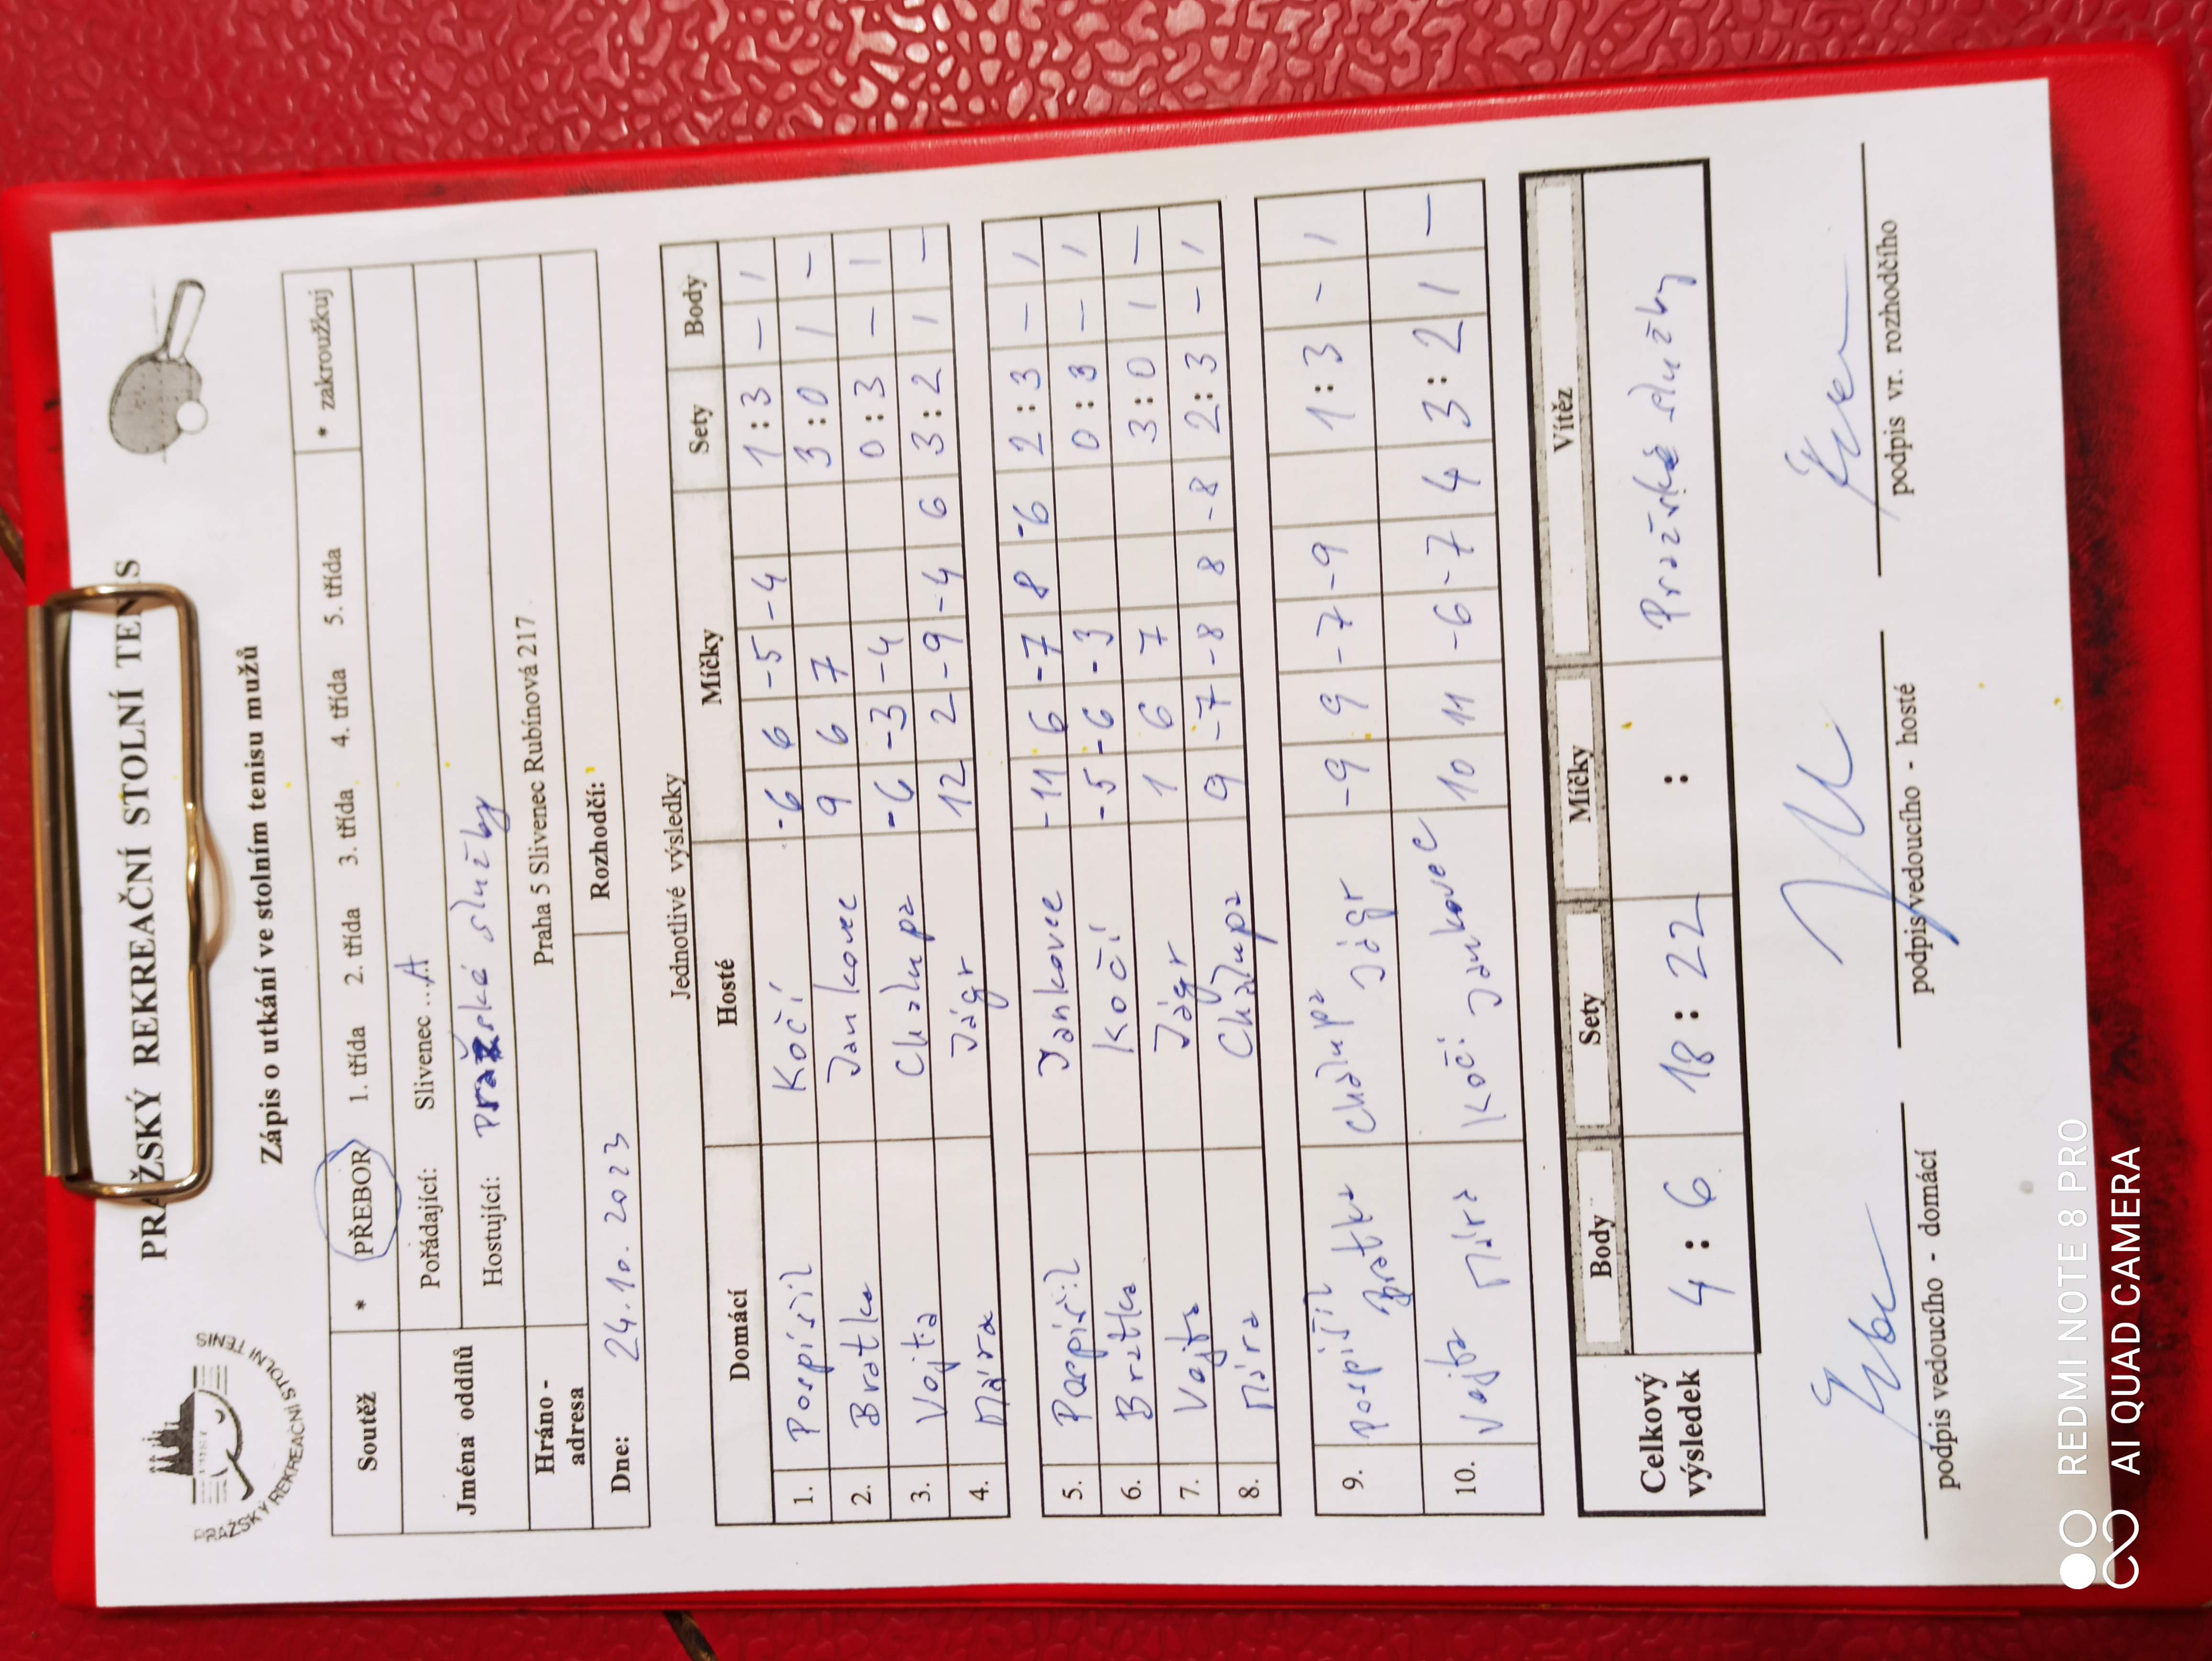 PRAŽSKÝ REKREAČNÍ STOLNÍ TENIS
PRAŽSKÝ REKREAČNÍ STOLNÍ TENIS
Zápis o utkání ve stolním tenisu mužů
Soutěž * PŘEBOR 1. třída 2. třída 3. třída 4. třída 5. třída * zakroužkuj
Jména oddílů
Pořádající: Slivenec ..A
Hostující: Pražské služby
Hráno - adresa Praha 5 Slivenec Rubínová 217
Dne: 24.10.2023 Rozhodčí:
Jednotlivé výsledky
Domácí Hosté Míčky Sety Body
1. Pospíšil Kočí -6 6 -5 -4 1 : 3 - 1
2. Bratka Jankovec 9 6 7 3 : 0 1 -
3. Vojta Chalupa -6 -3 -4 0 : 3 - 1
4. Mára Jágr 12 2 -9 -4 6 3 : 2 1 -
5. Pospíšil Jankovec -11 6 -7 8 -6 2 : 3 - 1
6. Bratka Kočí -5 -6 -3 0 : 3 - 1
7. Vojta Jágr 1 6 7 3 : 0 1 -
8. Mára Chalupa 9 -7 -8 8 -8 2 : 3 - 1
9. Pospíšil Bratka Chalupa Jágr -9 9 -7 -9 1 : 3 - 1
10. Vojta Mára Kočí Jankovec 10 11 -6 -7 4 3 : 2 1 -
Celkový výsledek
Body Sety Míčky Vítěz
4 : 6 18 : 22 : Pražské služby
podpis vedoucího - domácí podpis vedoucího - hosté podpis vr. rozhodčího
REDMI NOTE 8 PRO
AI QUAD CAMERA